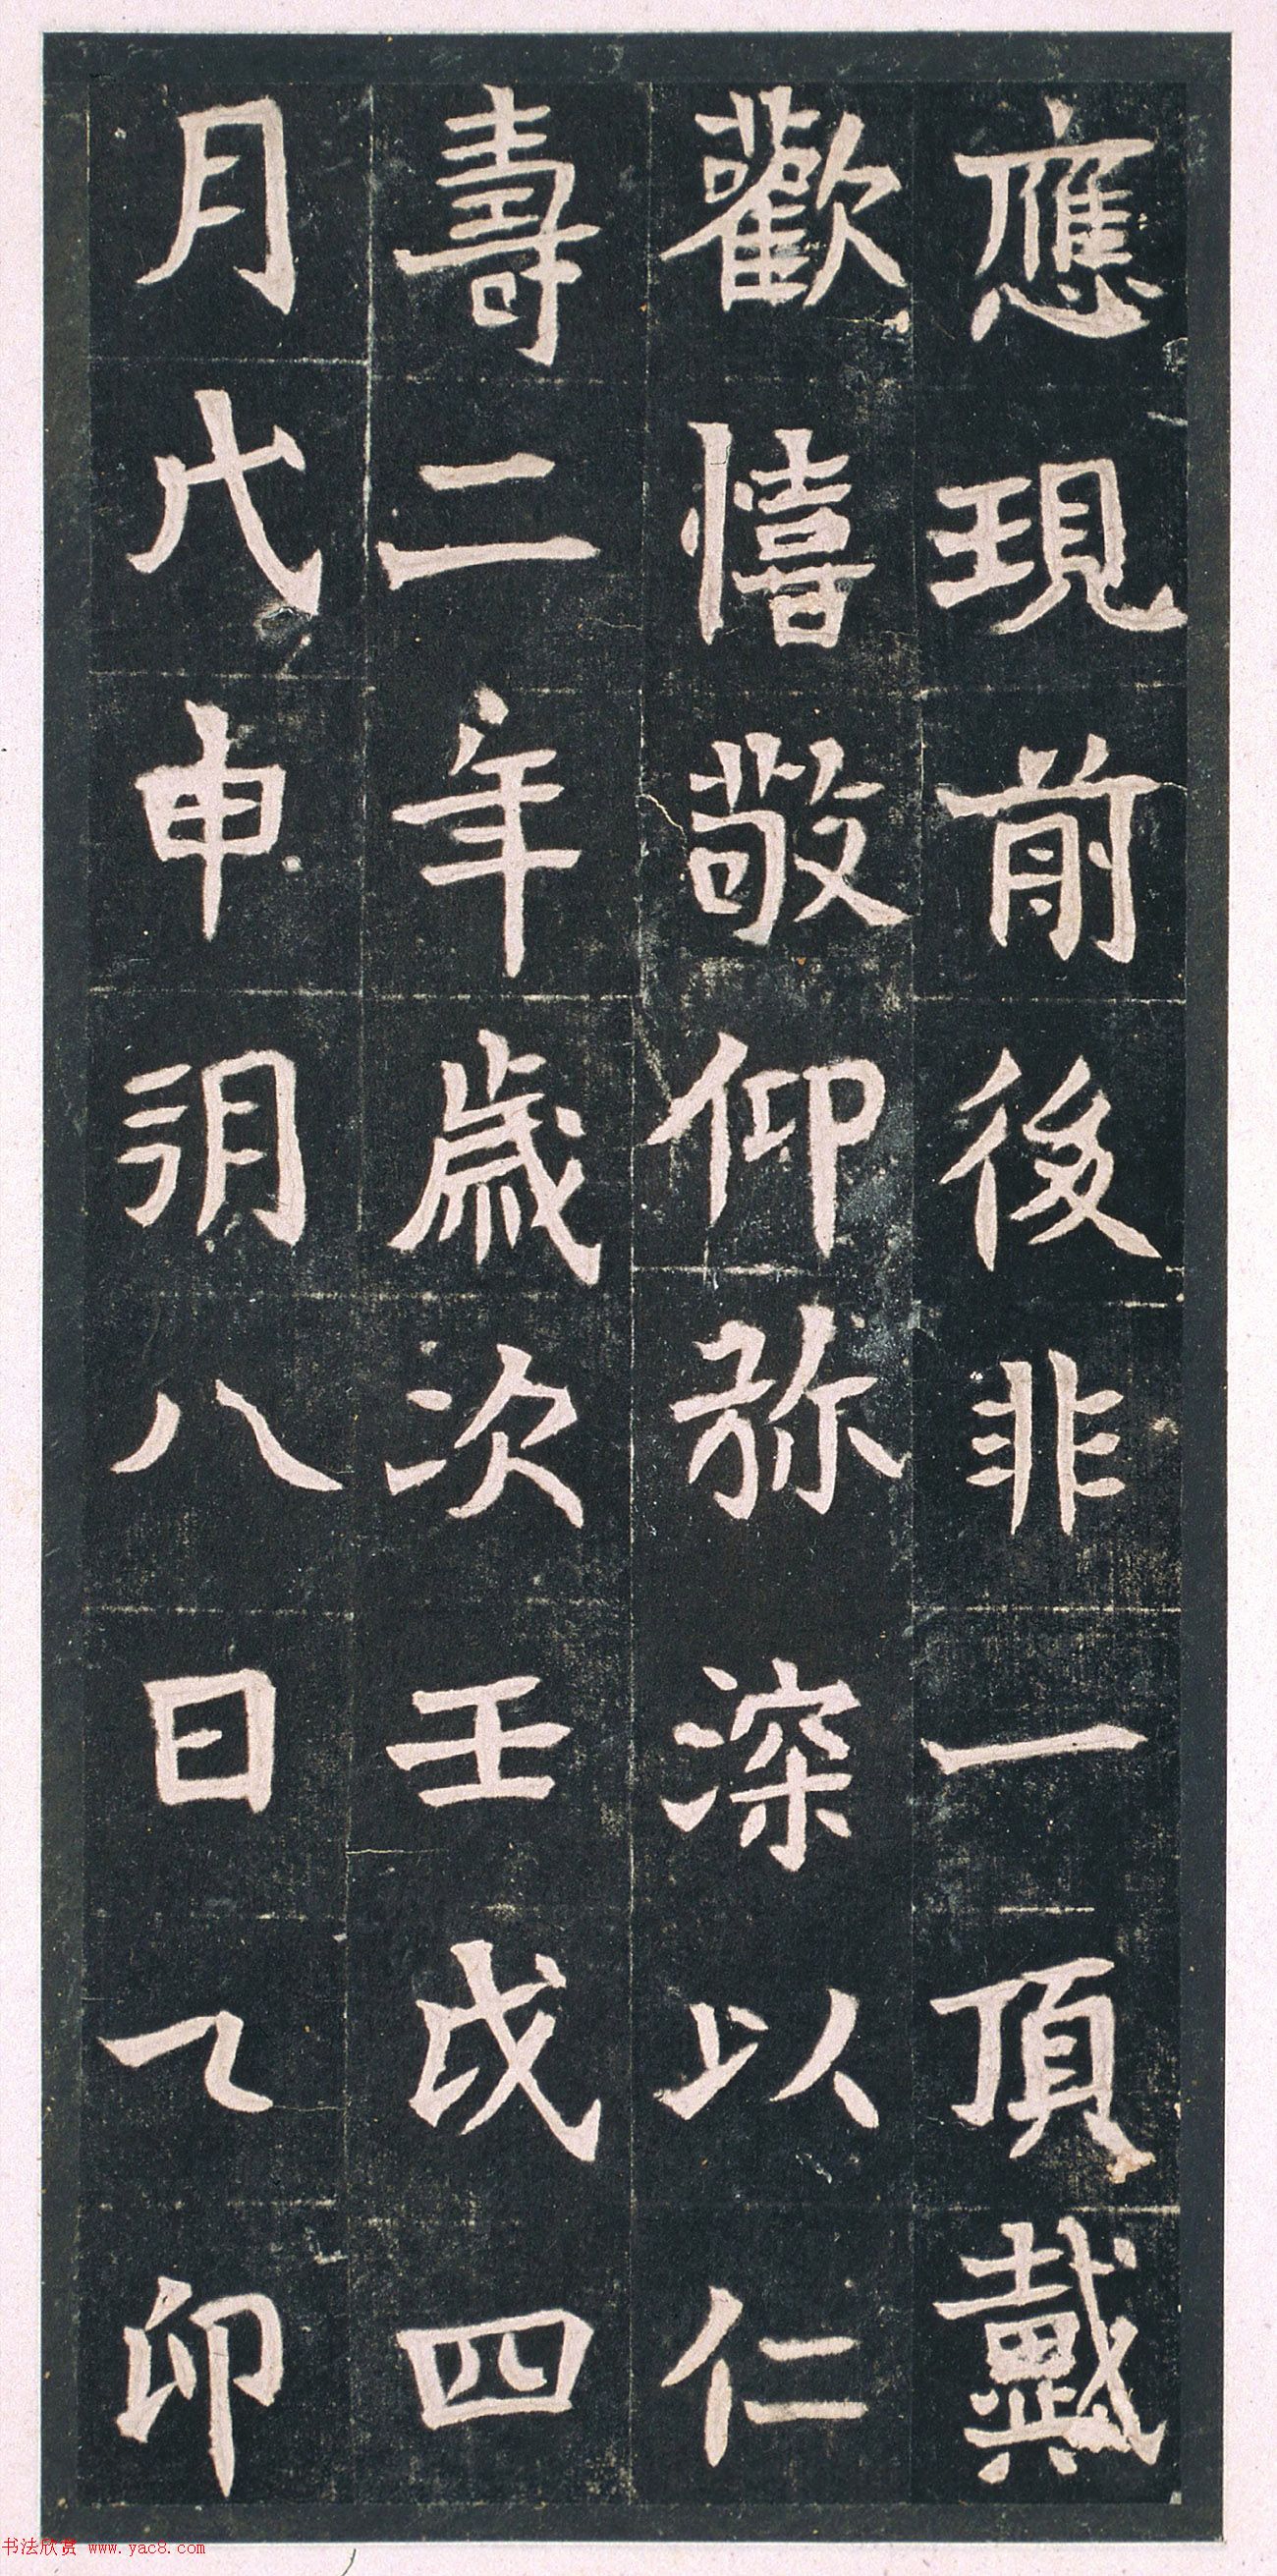 應現前後非一頂戴
歡憘敬仰弥深以仁
壽二年歲次壬戌四
月戊申朔八日乙卯
书法欣赏 www.yac8.com